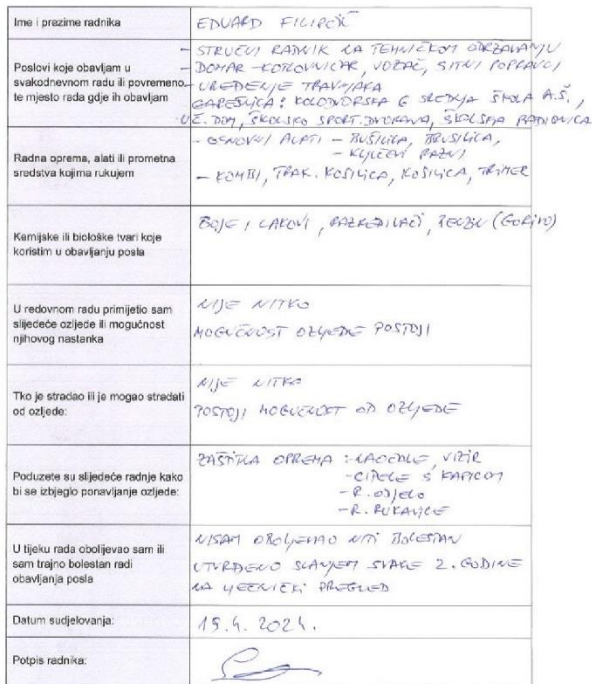 Ime i prezime radnika
EDUARD FILIPČIĆ
Poslovi koje obavljam u
svakodnevnom radu ili povremeno
te mjesto rada gdje ih obavljam
- STRUČNI RADNIK NA TEHNIČKOM ODRŽAVANJU
- DOMAR - KOTLOVNIČAR, VOZAČ, SITNI POPRAVCI
- UREĐENJE TRAVNJAKA
GAREŠNICA: KOLODVORSKA 6 SREDNJA ŠKOLA A.Š.,
UČ. DOM, ŠKOLSKO SPORT. DVORANA, ŠKOLSKA RADIONICA
Radna oprema, alati ili prometna
sredstva kojima rukujem
- OSNOVNI ALATI - BUŠILICA, BRUSILICA,
- KLJUČEVI RAZNI
- KOMBI, TRAK. KOSILICA, KOSILICA, TRIMER
Kemijske ili biološke tvari koje
koristim u obavljanju posla
BOJE I LAKOVI, RAZREĐIVAČI, BENZIN (GORIVO)
U redovnom radu primijetio sam
slijedeće ozljede ili mogućnost
njihovog nastanka
NIJE NITKO
MOGUĆNOST OZLJEDE POSTOJI
Tko je stradao ili je mogao stradati
od ozljede:
NIJE NITKO
POSTOJI MOGUĆNOST OD OZLJEDE
Poduzete su slijedeće radnje kako
bi se izbjeglo ponavljanje ozljede:
ZAŠTITNA OPREMA: - NAOČALE, VIZIR
- CIPELE S KAPICOM
- R. ODJELO
- R. RUKAVICE
U tijeku rada obolijevao sam ili
sam trajno bolestan radi
obavljanja posla
NISAM OBOLJEVAO NITI BOLESTAN
UTVRĐENO SLANJEM SVAKE 2. GODINE
NA LIJEČNIČKI PREGLED
Datum sudjelovanja:
15.4.2024.
Potpis radnika: